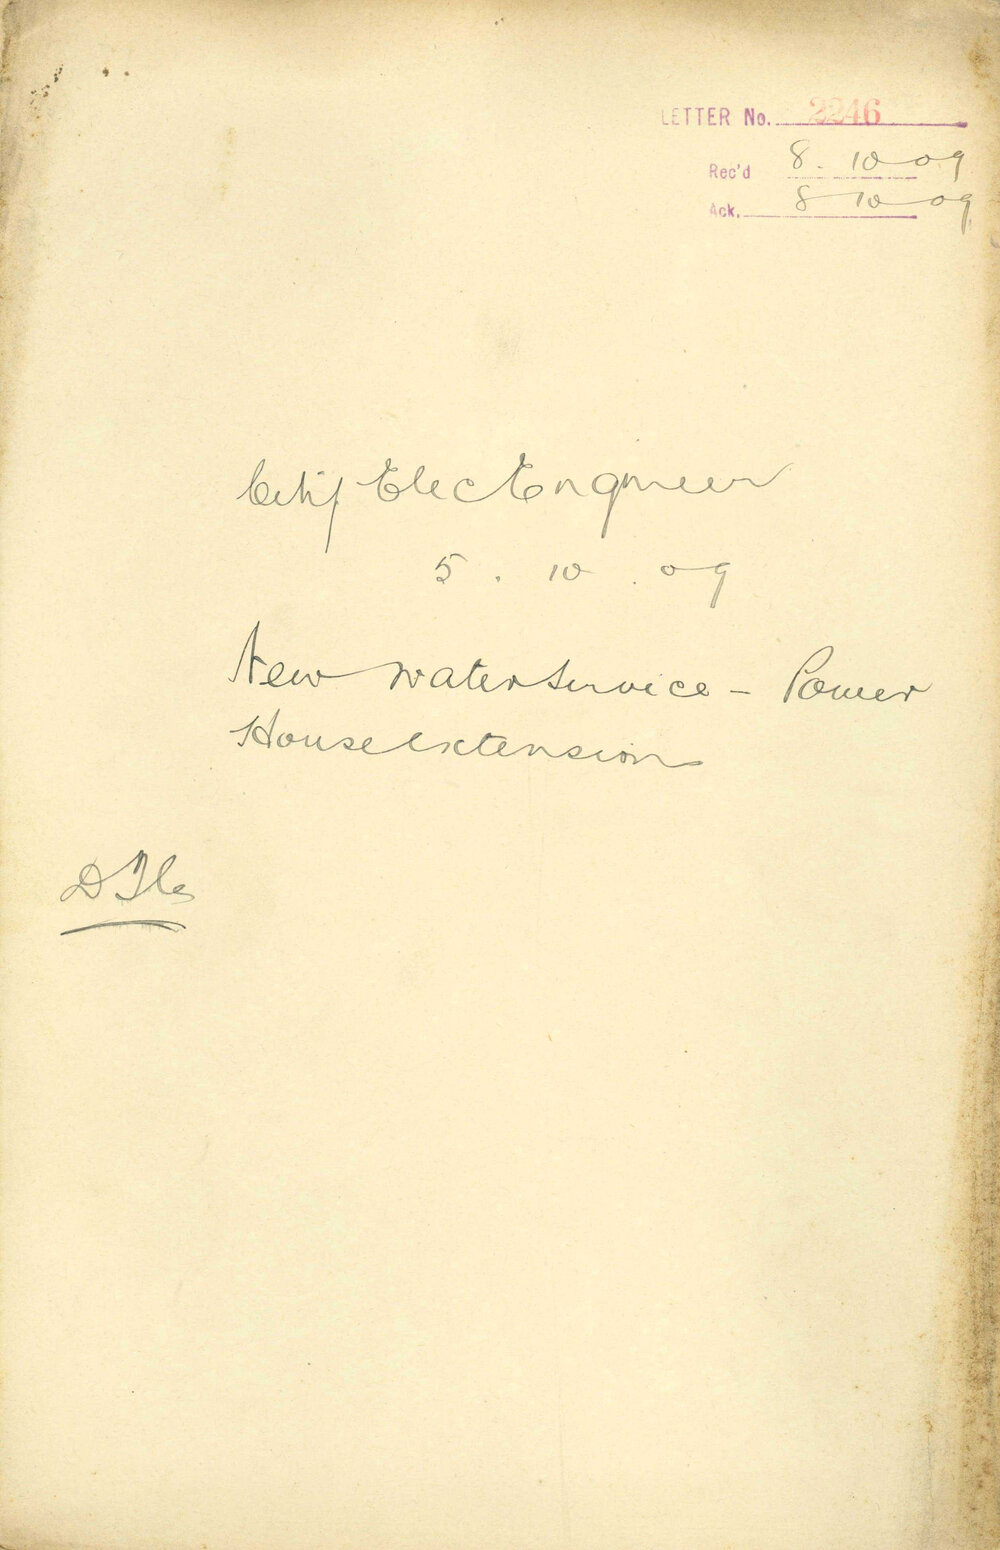 LETTER No. 2246
Rec'd 8. 10 09
Ack. 8 10 09
City Elec Engineer
5. 10. 09
New Water Service - Power
House extension